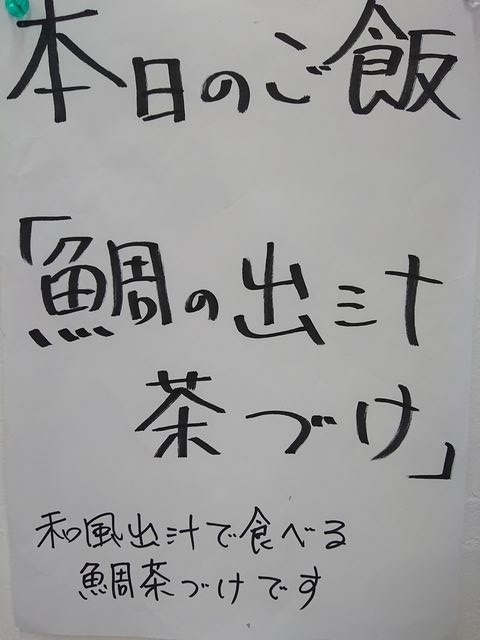 本日のご飯
「鯛の出汁
茶づけ」
和風出汁で食べる
鯛茶づけです